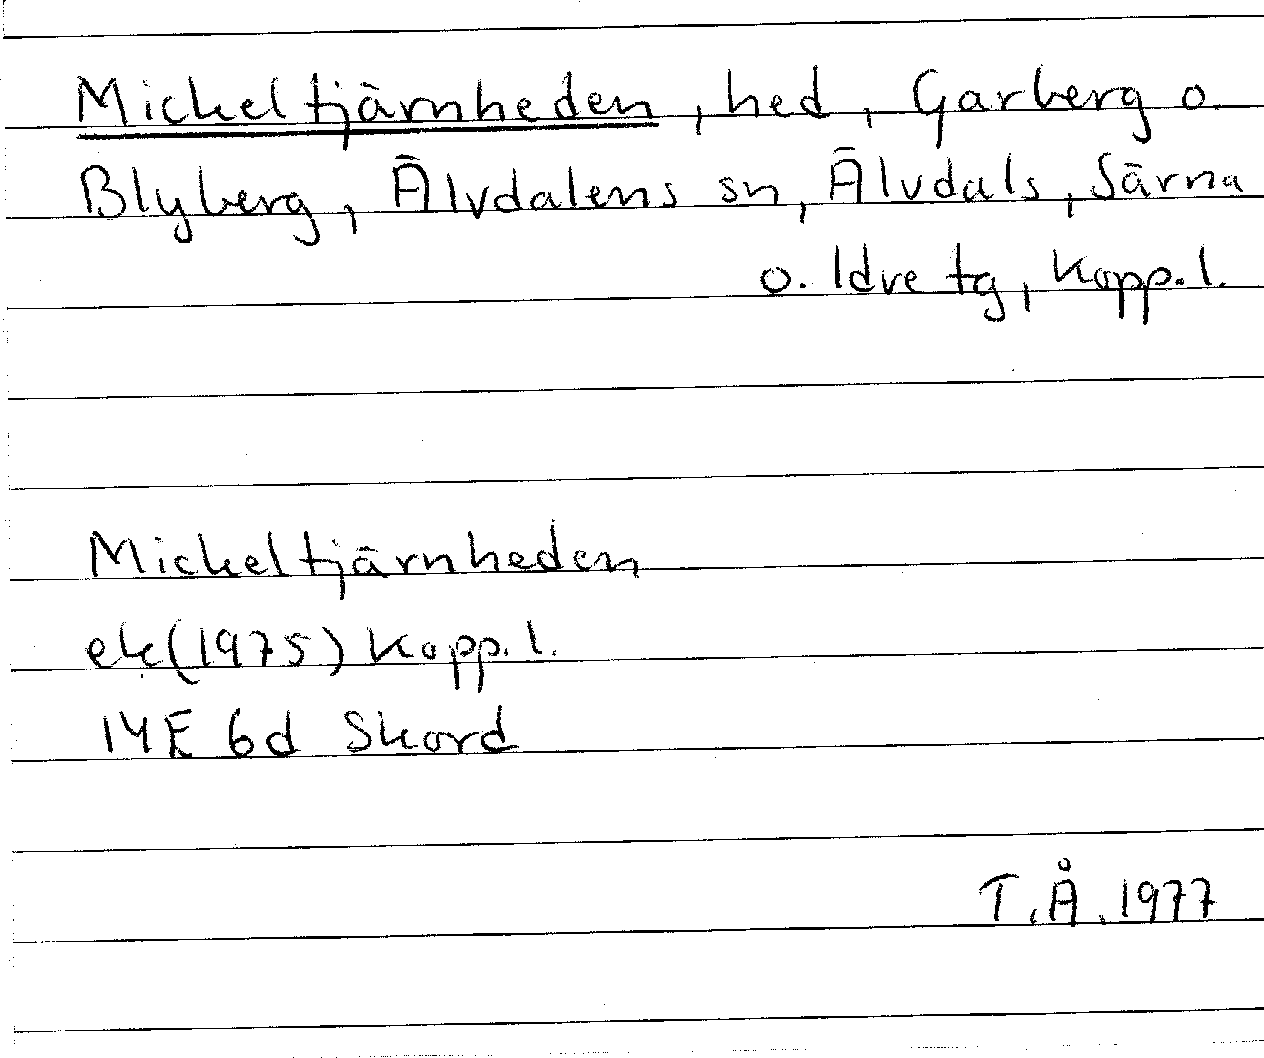 Mickeltjärnheden, hed, Garberg o.
Blyberg, Älvdalens sn, Älvdals, Särna
o. Idre tg, Kopp. l.
Mickeltjärnheden
ek (1975) Kopp. l.
14E 6d Skord
T.Å. 1977